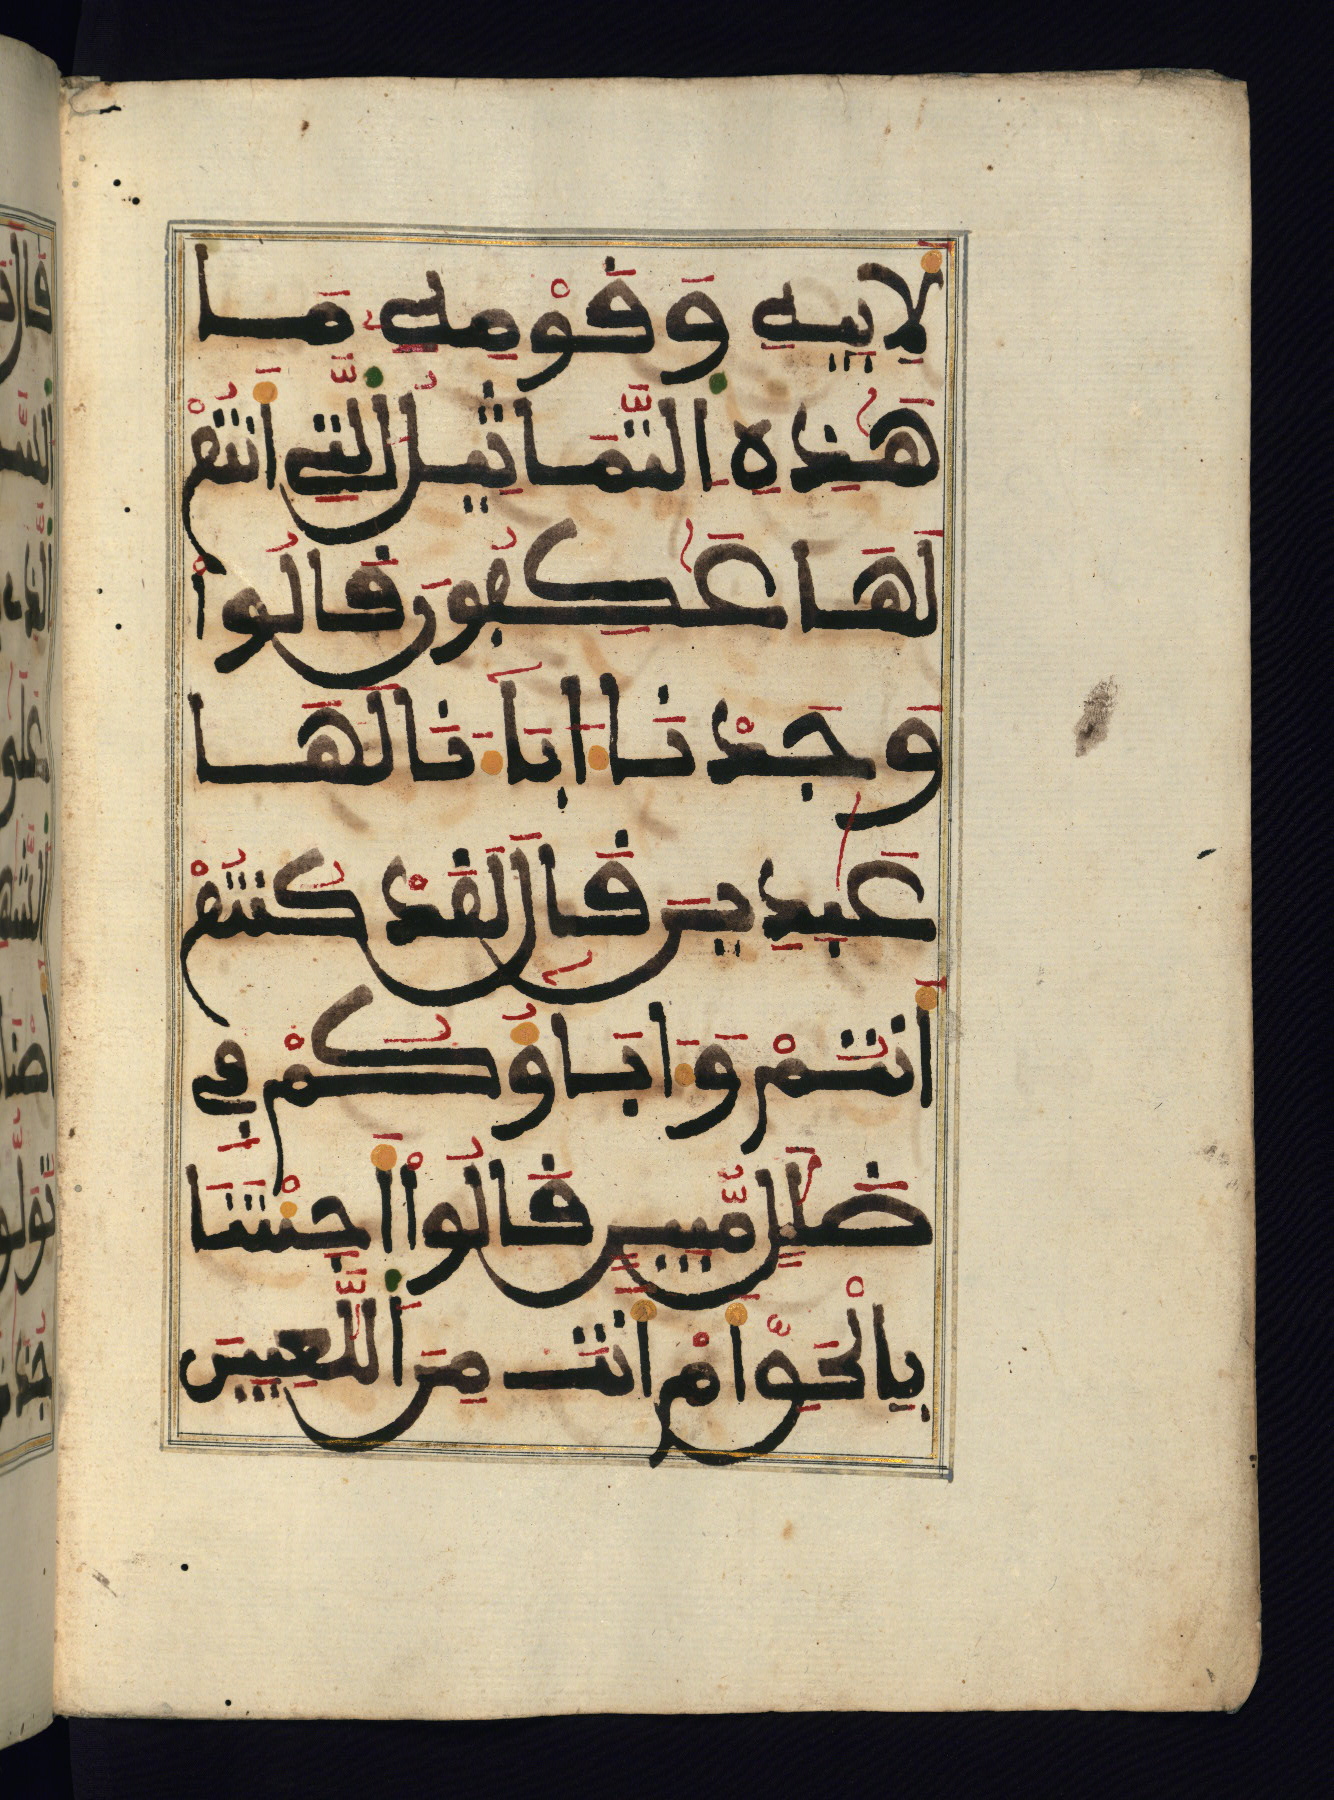 لِأَبِيهِ وَقَوْمِهِ مَا
هَٰذِهِ اِ۬لتَّمَاثِيلُ اُ۬لتِے أَنتُمْ
لَهَا عَٰكِفُونَ قَالُواْ
وَجَدْنَا ءَابَآءَنَا لَهَا
عَٰبِدِينَ قَالَ لَقَدْ كُنتُمْ
أَنتُمْ وَءَابَآؤُكُمْ فِے
ضَلَٰلٍ مُّبِينٍ قَالُوٓاْ أَجِئْتَنَا
بِالْحَقِّ أَمْ أَنتَ مِنَ اَ۬للَّٰعِبِينَ